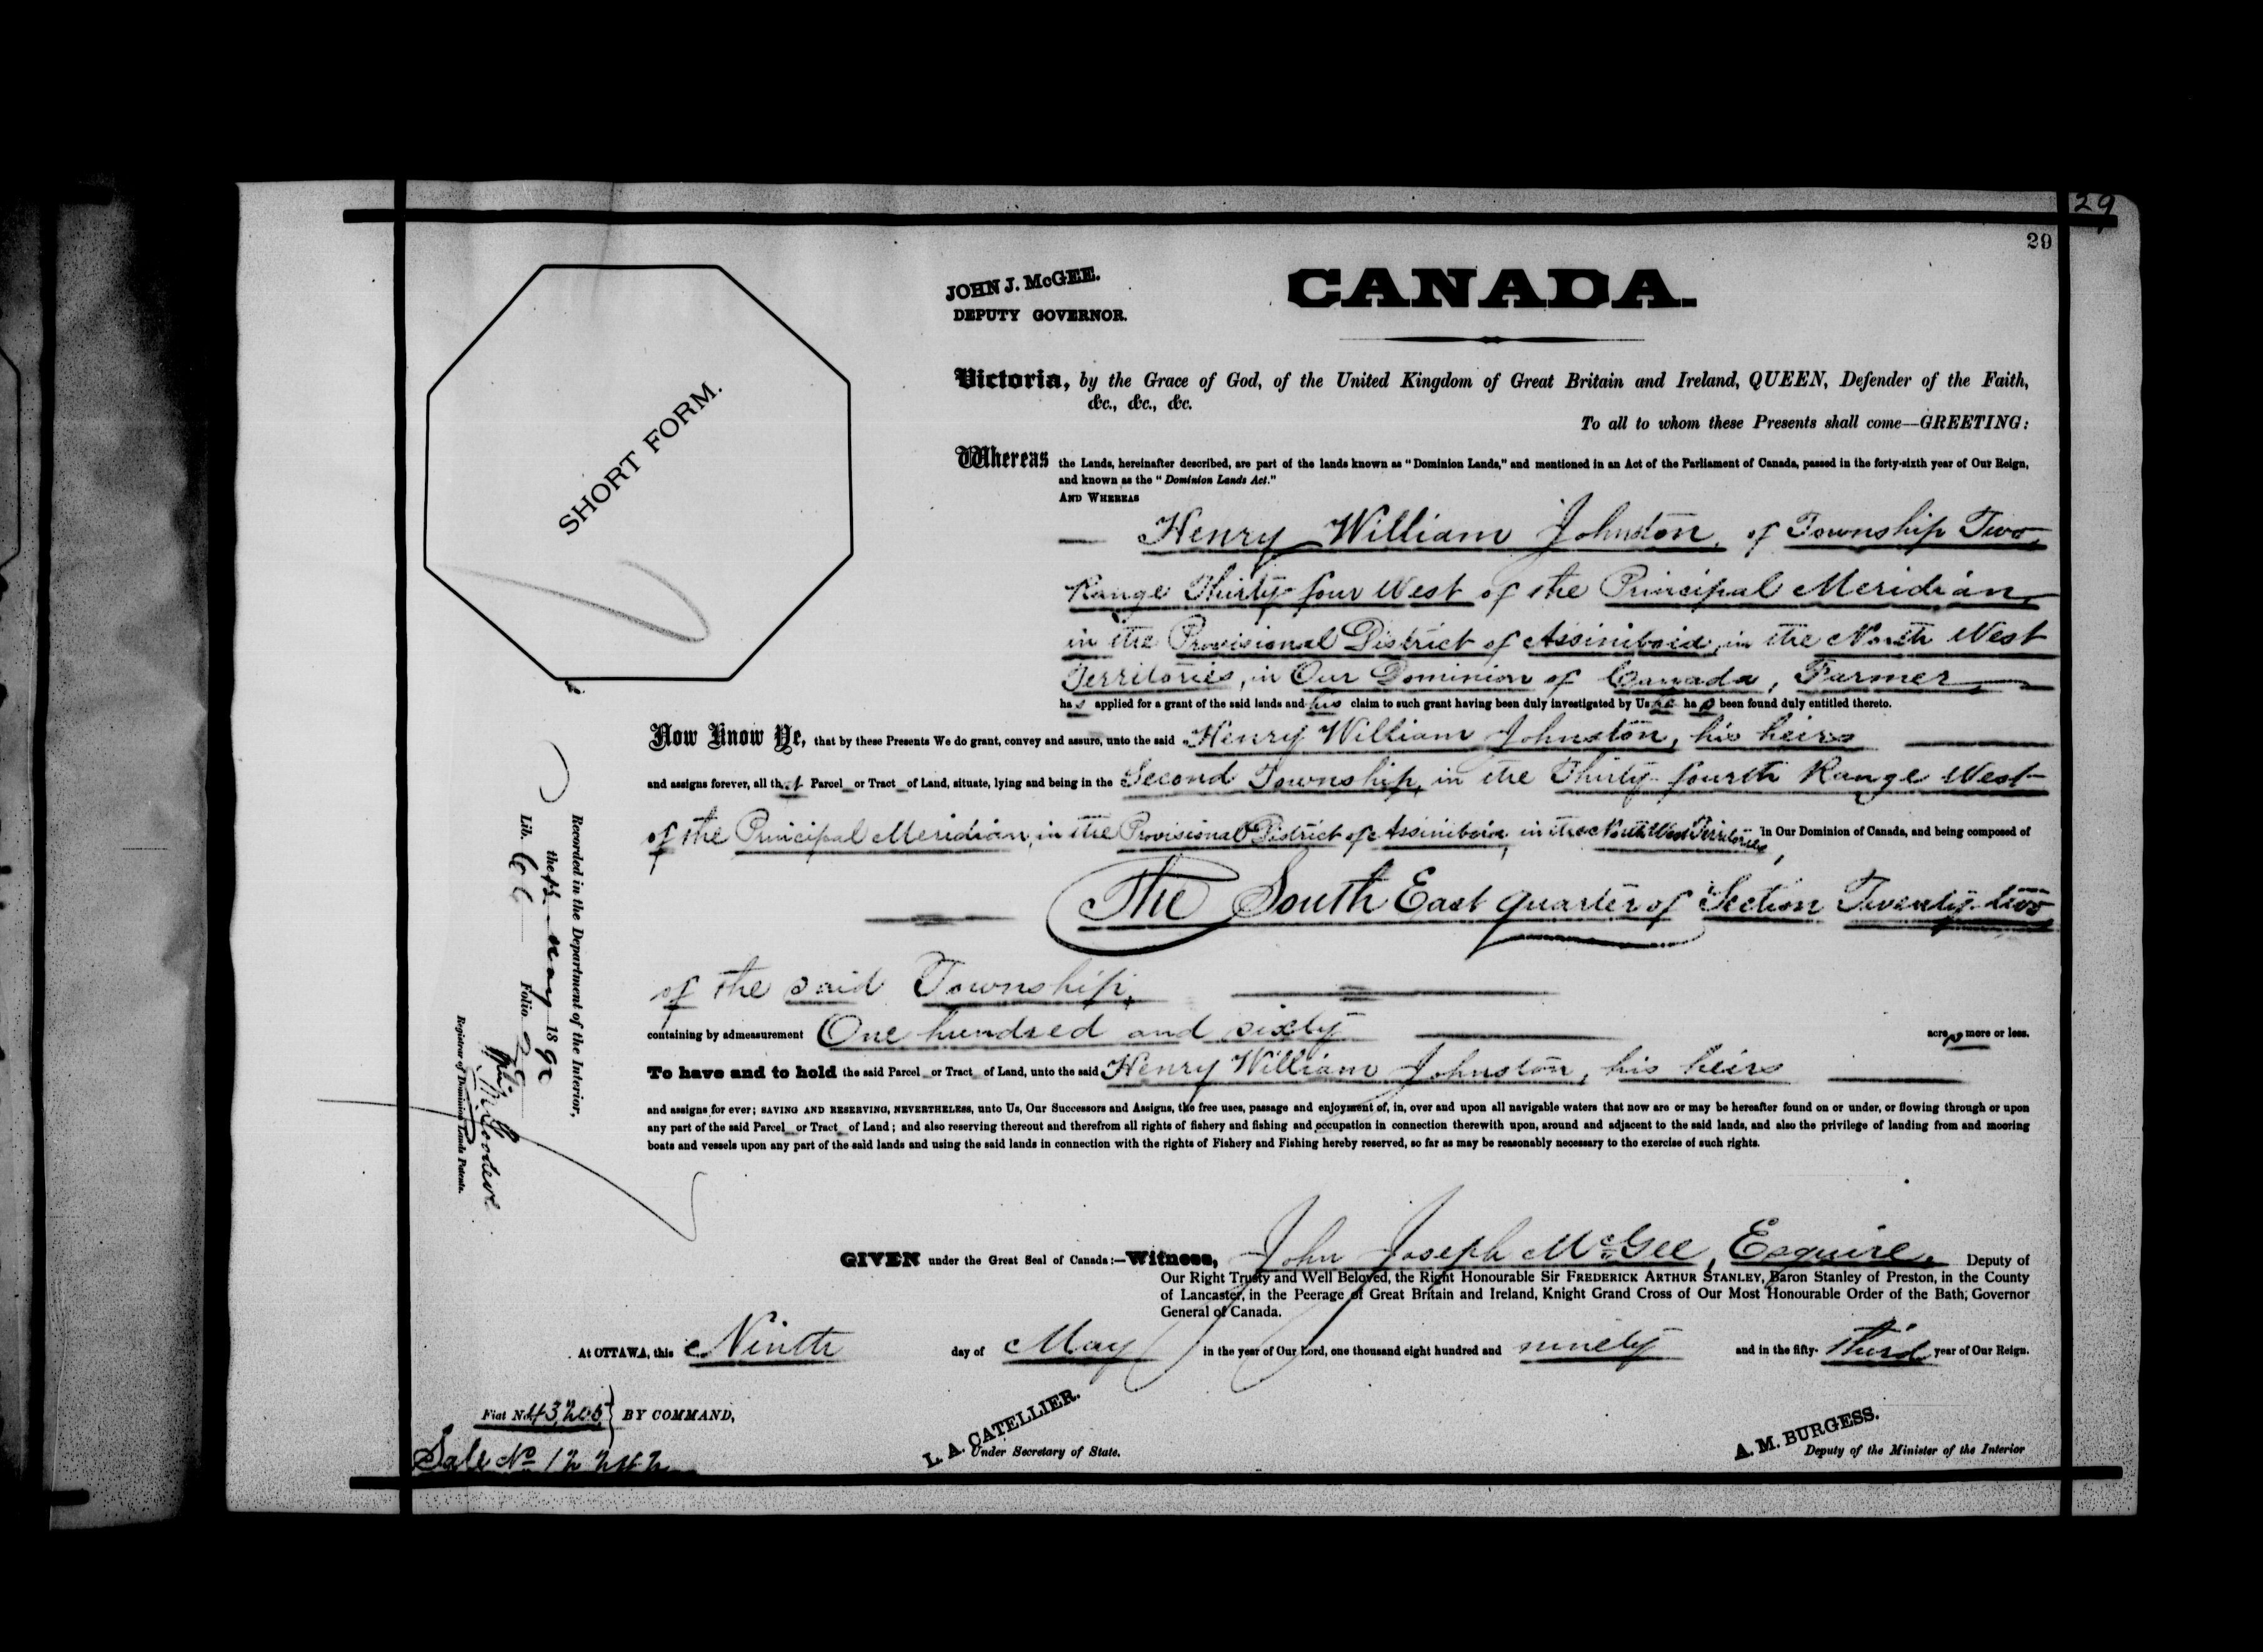 29
29
JOHN J. McGEE.
DEPUTY GOVERNOR.
CANADA.
SHORT FORM.
Victoria, by the Grace of God, of the United Kingdom of Great Britain and Ireland, QUEEN, Defender of the Faith,
&c., &c., &c.
To all to whom these Presents shall come—GREETING:
Whereas the Lands, hereinafter described, are part of the lands known as "Dominion Lands," and mentioned in an Act of the Parliament of Canada, passed in the forty-sixth year of Our Reign,
and known as the "Dominion Lands Act."
AND WHEREAS
Henry William Johnston, of Township Two,
Range Thirty-four West of the Principal Meridian,
in the Provisional District of Assiniboia, in the North West
Territories, in Our Dominion of Canada, Farmer
has applied for a grant of the said lands and his claim to such grant having been duly investigated by Us he has been found duly entitled thereto.
Now Know Ye, that by these Presents We do grant, convey and assure, unto the said Henry William Johnston, his heirs
and assigns forever, all that Parcel or Tract of Land, situate, lying and being in the Second Township, in the Thirty-fourth Range West
of the Principal Meridian, in the Provisional District of Assiniboia, in the North West Territories, in Our Dominion of Canada, and being composed of
The South East quarter of Section Twenty-two
of the said Township,
containing by admeasurement One hundred and sixty acres more or less.
To have and to hold the said Parcel or Tract of Land, unto the said Henry William Johnston, his heirs
and assigns for ever; SAVING AND RESERVING, NEVERTHELESS, unto Us, Our Successors and Assigns, the free uses, passage and enjoyment of, in, over and upon all navigable waters that now are or may be hereafter found on or under, or flowing through or upon
any part of the said Parcel or Tract of Land; and also reserving thereout and therefrom all rights of fishery and fishing and occupation in connection therewith upon, around and adjacent to the said lands, and also the privilege of landing from and mooring
boats and vessels upon any part of the said lands and using the said lands in connection with the rights of Fishery and Fishing hereby reserved, so far as may be reasonably necessary to the exercise of such rights.
Recorded in the Department of the Interior,
the May 1890
Lib. Folio
Registrar of Dominion Lands Patents.
GIVEN under the Great Seal of Canada:—Witness, John Joseph McGee, Esquire, Deputy of
Our Right Trusty and Well Beloved, the Right Honourable Sir FREDERICK ARTHUR STANLEY, Baron Stanley of Preston, in the County
of Lancaster, in the Peerage of Great Britain and Ireland, Knight Grand Cross of Our Most Honourable Order of the Bath, Governor
General of Canada.
At OTTAWA, this Ninth day of May in the year of Our Lord, one thousand eight hundred and ninety and in the fifty-third year of Our Reign.
Fiat No. 43,205 } BY COMMAND,
Sale No
L. A. CATELLIER.
Under Secretary of State.
A. M. BURGESS.
Deputy of the Minister of the Interior